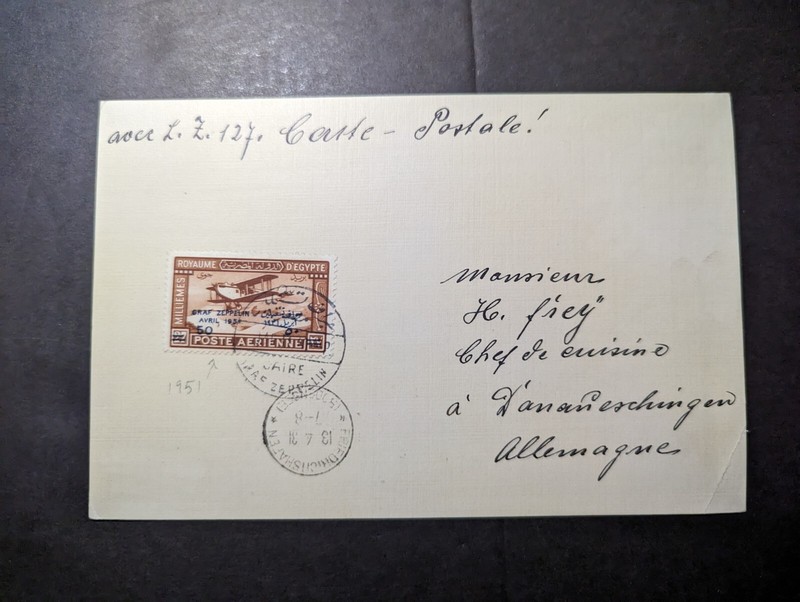 avec L. Z. 127. Carte - Postale!
ROYAUME المملكة المصرية D'EGYPTE
MILLIEMES
GRAF ZEPPELIN
AVRIL 1931
50
POSTE AERIENNE
1951
CAIRE
GRAF ZEPPELIN
FRIEDRICHSHAFEN
13.4.31
7-8
(BODENSEE)
Monsieur
H. Frey
Chef de cuisine
à Donaueschingen
Allemagne